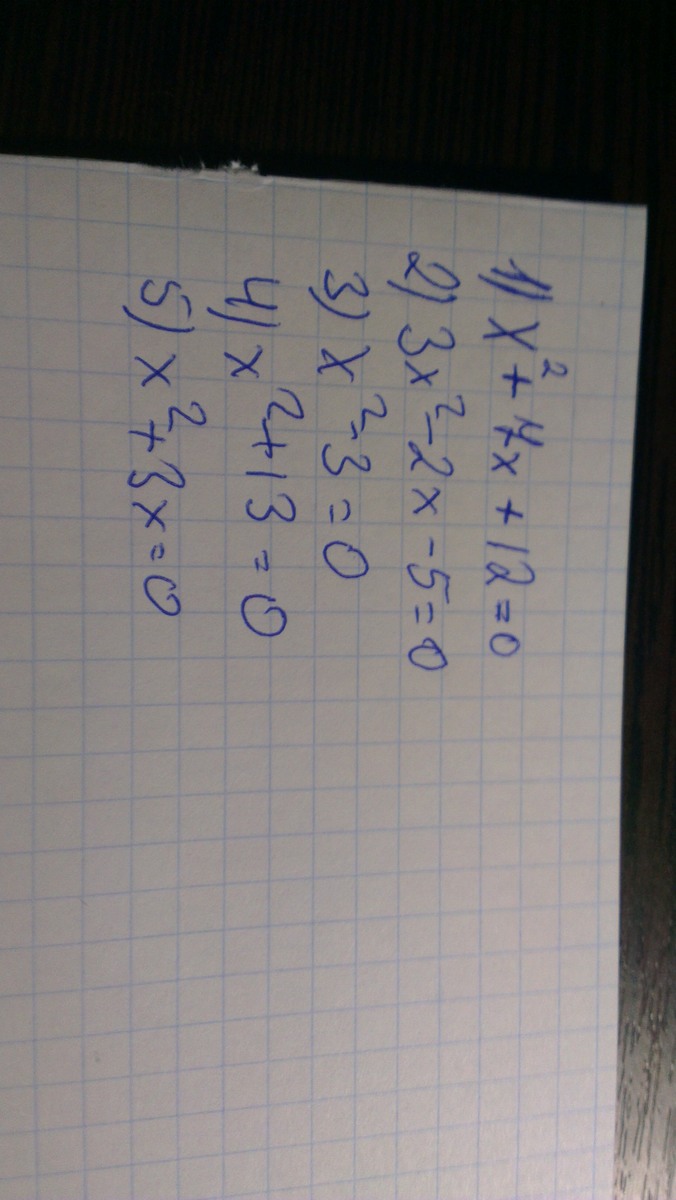 1) x²+7x+12=0
2) 3x²-2x-5=0
3) x²-3=0
4) x²+13=0
5) x²+3x=0